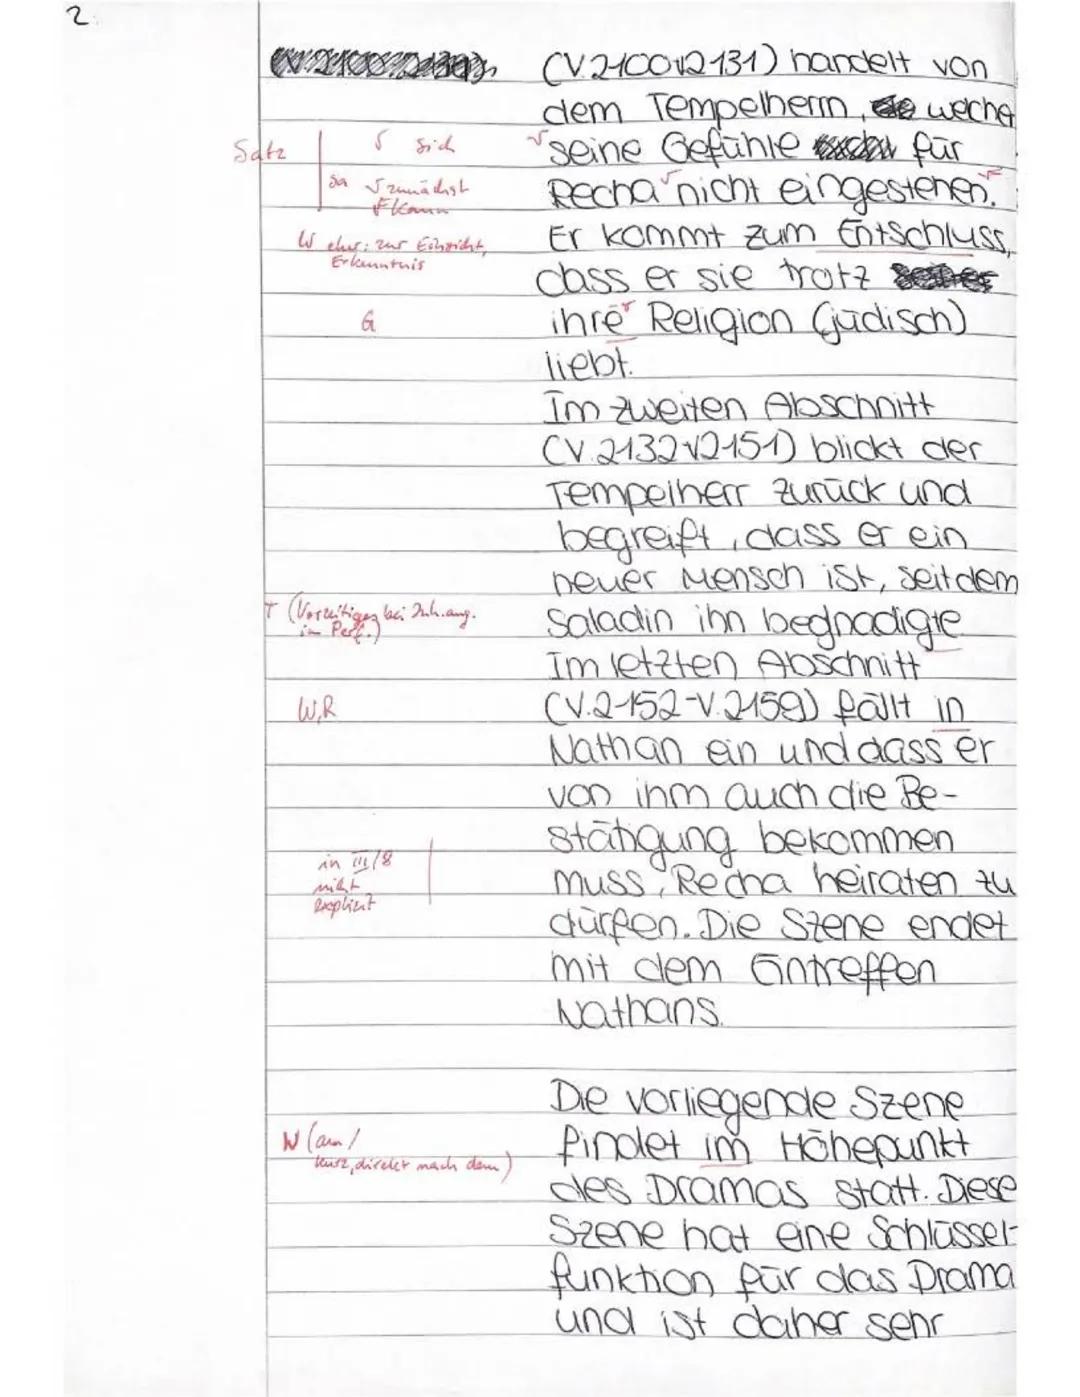 2.
(V.2100-V.2131) handelt von
dem Tempelherrn, welcher
Satz √ sich
seine Gefühle für
sa √ zunächst
F kann
Recha nicht eingestehen.
W eher: zur Einsicht,
Erkenntnis
Er kommt zum Entschluss,
dass er sie trotz
G
ihre Religion (jüdisch)
liebt.
Im zweiten Abschnitt
(V.2132-V2151) blickt der
Tempelherr zurück und
begreift, dass er ein
neuer Mensch ist, seitdem
T (Vorzeitiges bei Inh.ang.
im Perf.)
Saladin ihn begnadigte
Im letzten Abschnitt
W,R
(V.2152-V.2159) fällt in
Nathan ein und dass er
von ihm auch die Be-
stätigung bekommen
in III/8
nicht
explizit
muss, Recha heiraten zu
dürfen. Die Szene endet
mit dem Eintreffen
Nathans.
Die vorliegende Szene
W (am /
kurz, direkt nach dem)
findet im Höhepunkt
des Dramas statt. Diese
Szene hat eine Schlüssel-
funktion für das Drama
und ist daher sehr